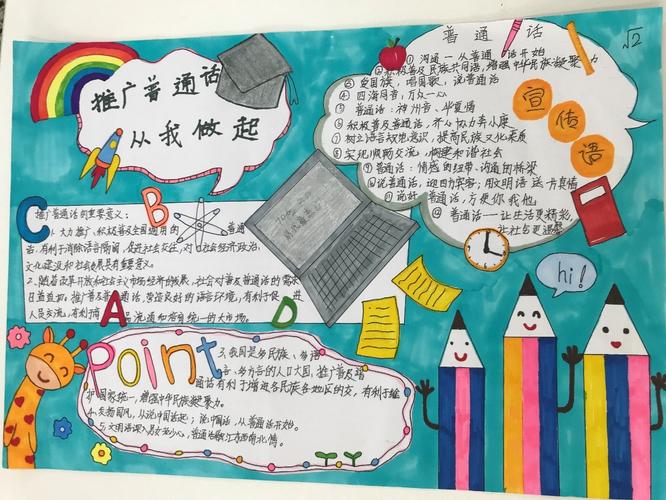 推广普通话
从我做起
普通话
√2
宣传语
① 沟通—从普通话开始
② 积极普及民族共同语，增强中华民族凝聚力
③ 爱国旗，唱国歌，说普通话
④ 四海同音，万众一心
⑤ 普通话：神州音、华夏情
⑥ 积极普及普通话，齐心协力奔小康
⑦ 树立语言规范意识，提高民族文化素质
⑧ 实现顺畅交流，构建和谐社会
⑨ 普通话：情感的纽带、沟通的桥梁
⑩ 说普通话，迎四方宾客；用文明语送一方真情
说好普通话，方便你我他
普通话——让生活更精彩，
hi!
C
B
A
D
推广普通话的重要意义：
1、大力推广、积极普及全国通用的普通
话，有利于消除语言隔阂，促进社会交往，对社会经济、政治、
文化建设和社会发展具有重要意义。
2、随着改革开放和社会主义市场经济的发展，社会对普及普通话的需求
日益迫切。推广普及普通话，营造良好的语言环境，有利于促进
人员交流，有利于商品流通和培育统一的大市场。
Point
3、我国是多民族、多语
言、多方言的人口大国，推广普及普
通话有利于增进各民族各地区的交，有利于维
护国家统一，增强中华民族凝聚力。
从说中国话起；说中国话，从普通话开始。